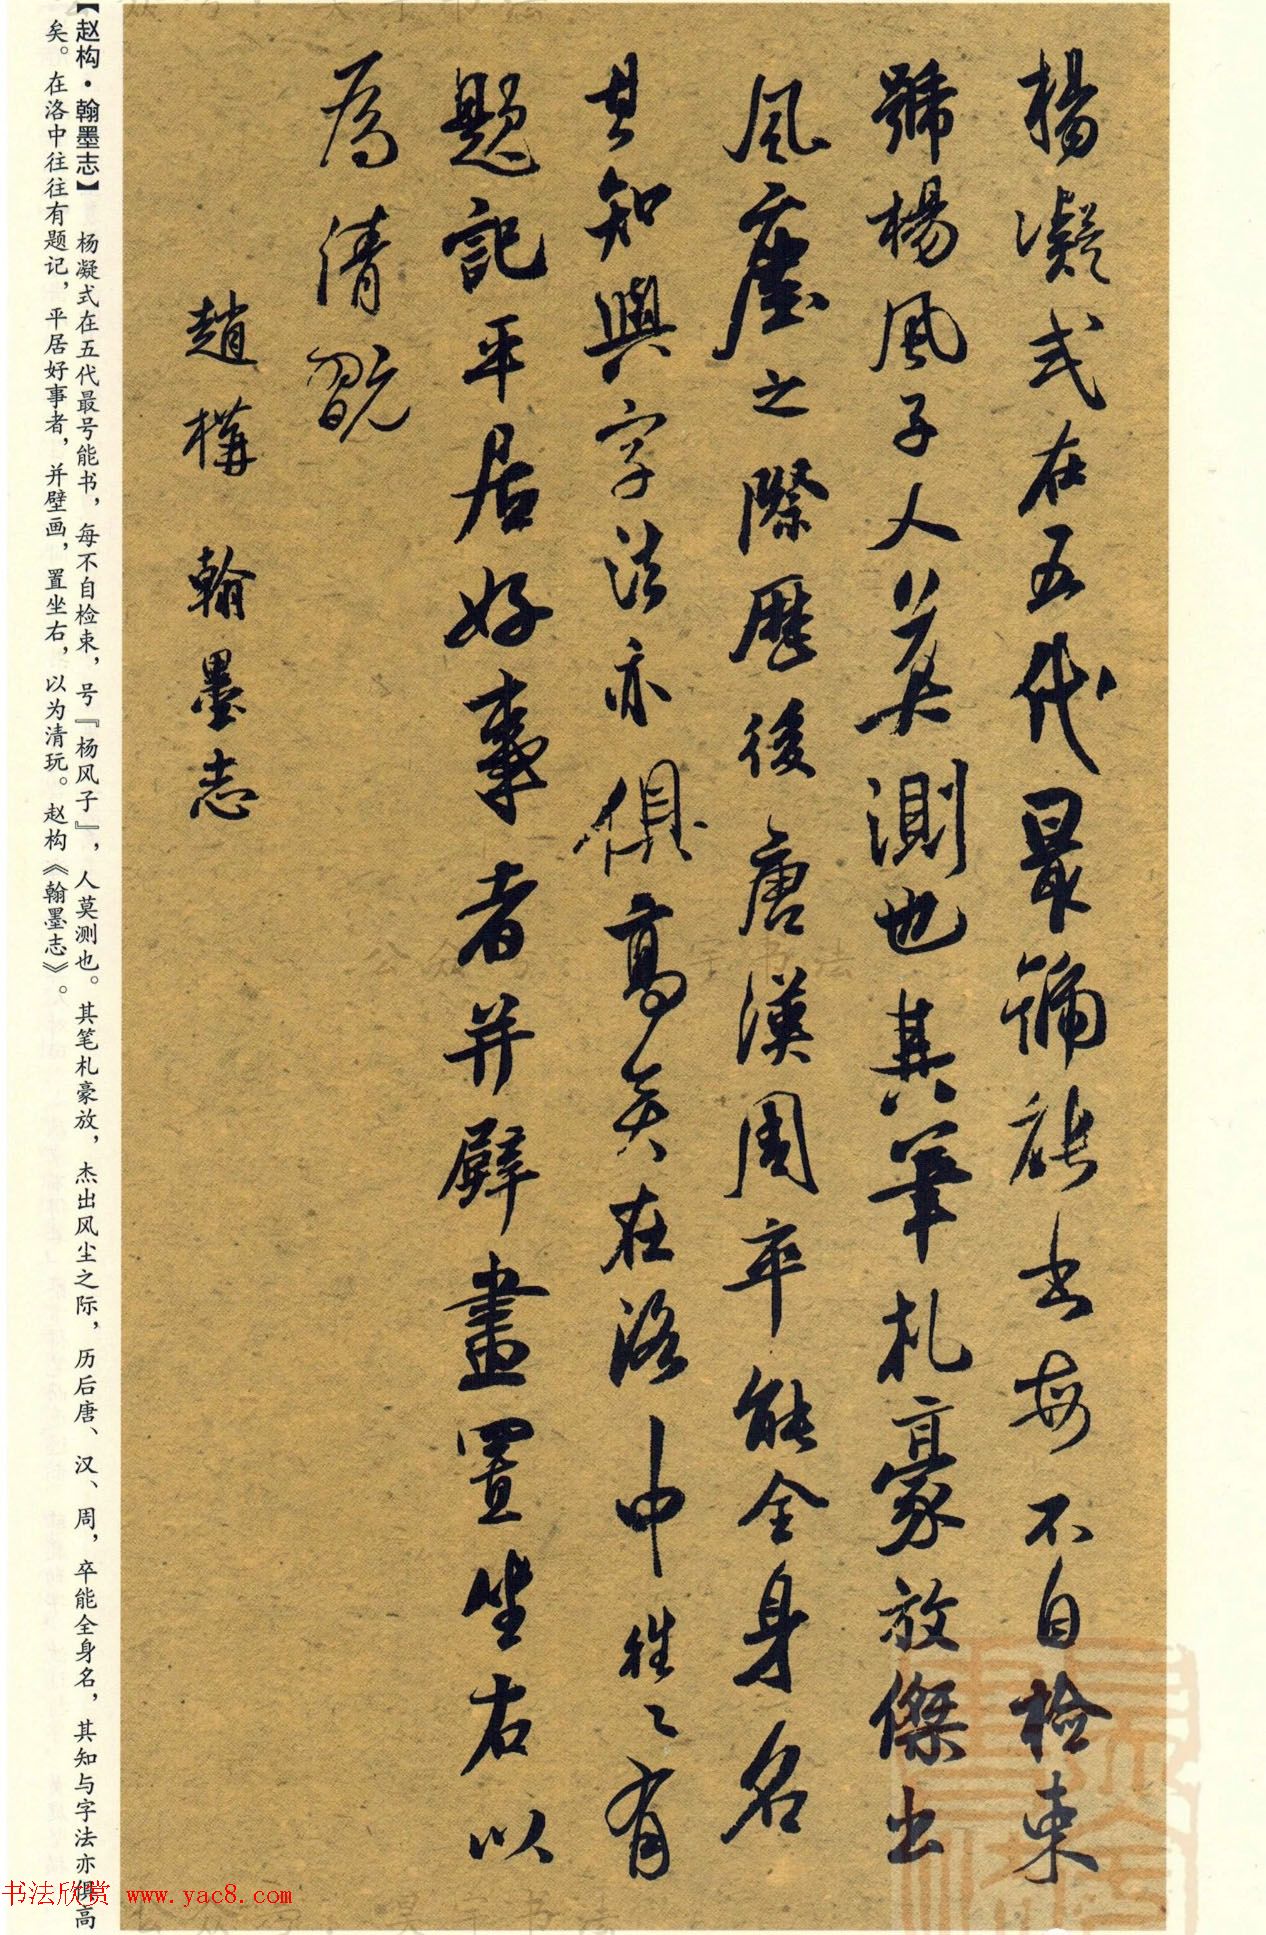 楊凝式在五代最號能书每不自檢束
號楊風子人莫測也其筆札豪放傑出
風塵之際歷後唐漢周卒能全身名
其知與字法亦俱高矣在洛中往々有
題記平居好事者并壁畫置坐右以
為清翫
趙構翰墨志
【赵构·翰墨志】 杨凝式在五代最号能书，每不自检束，号『杨风子』，人莫测也。其笔札豪放，杰出风尘之际，历后唐、汉、周，卒能全身名，其知与字法亦俱高
矣。在洛中往往有题记，平居好事者，并壁画，置坐右，以为清玩。赵构《翰墨志》。
书法欣赏 www.yac8.com